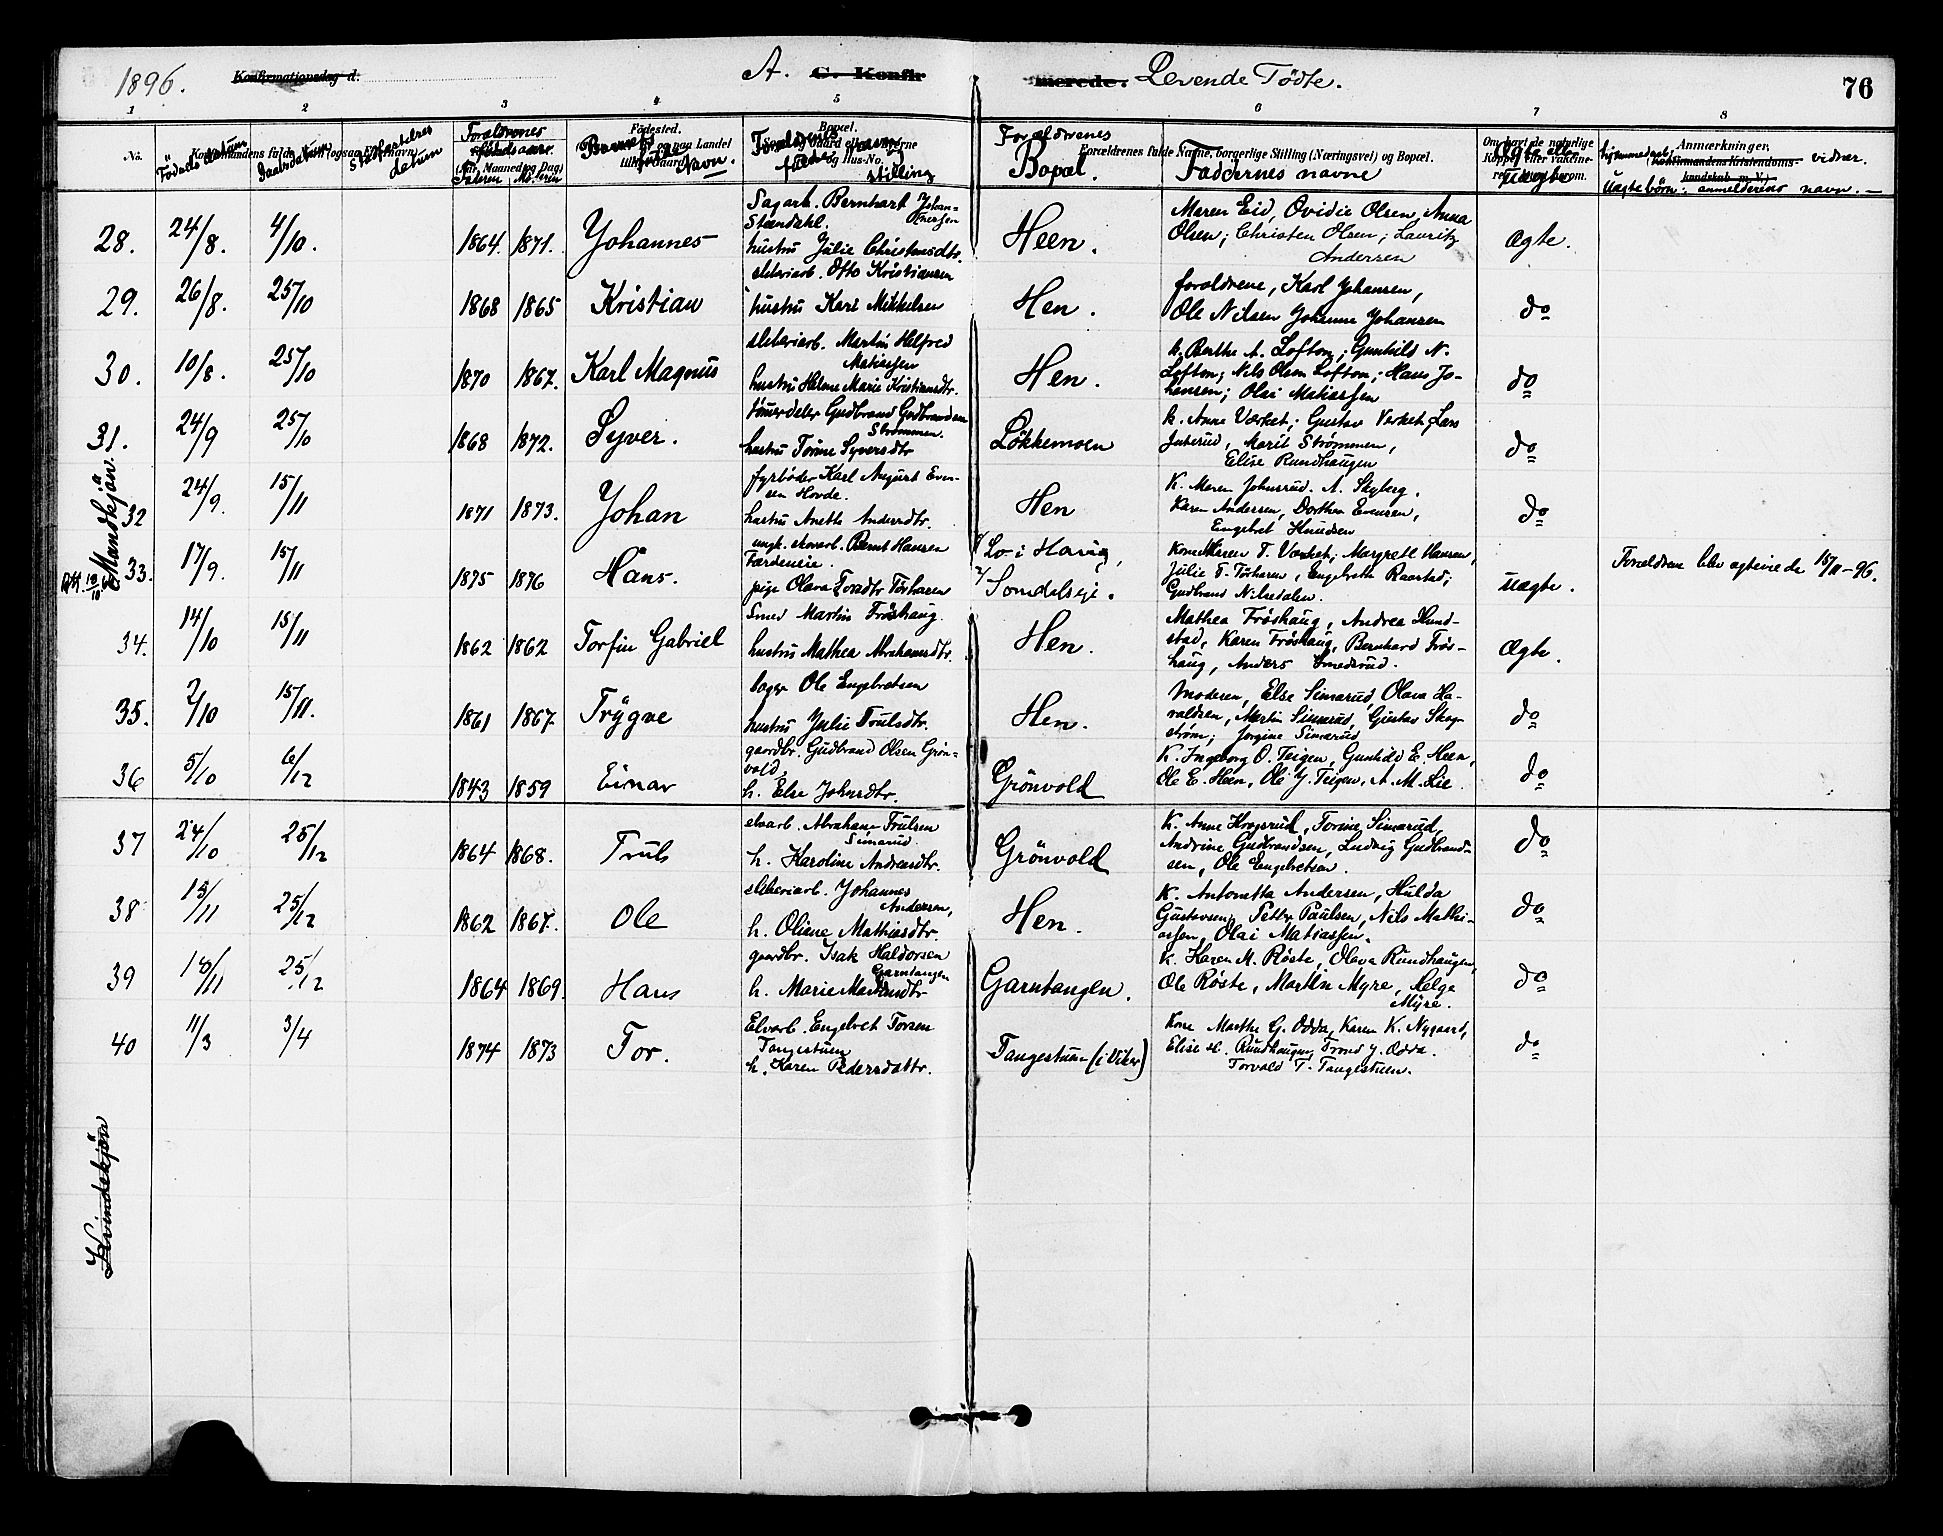 1896. Konfirmationsdag d: A. C. Konfir merede. Levende Födte. 76
1 2 3 4 5 6 7 8
No. Födselsdatum Daabsdatum Stadfæstelses datum Forældrenes fødselsaar. Faderen Moderen Barnets fulde Navn. Forældrenes navne og stilling
Forældrenes Bopæl. Faddernes navne Ægte eller Uægte Anmærkninger, hjemmedaab, vidner.
Uægte börn: anmelderens navn. —
Födested. Bopæl.
Forældrenes fulde Navne, borgerlige Stilling (Næringsvei) og Bopæl.
28. 24/8. 4/10. 1864. 1871. Johannes Sagarb. Bernhart Johan-
Stændahl.
hustru Julie Christensdtr. Heen. Maren Eid, Ovidie Olsen, Anna
Olsen; Christen Olsen; Lauritz
Andersen Ægte.
29. 26/8. 25/10 1868 1865 Kristian sliberiarb. Otto Kristiansen
hustru Kari Mikkelsen Hen. forældrene, Karl Johansen,
Ole Nilsen Johanne Johansen do
30. 10/8. 25/10 1870 1867. Karl Magnus sliberiarb. Martin Helfred
Matiassen
hustru Helene Marie Kristiansdtr. Hen. k. Berthe A. Loftom; Gunhild N.
Loftom; Nils Olsen Loftom; Hans Jo-
hansen; Olai Matiassen do
31. 24/9 25/10 1868 1872. Syver. tömmerdeler Gudbrand Gudbrandsen
Strømmen.
hustru Torine Syversdtr Lökkemoen k. Anne Værket; Gustav Verket, Lars
Juterud, Marit Strømmen,
Elise Rundhaugen do
a Mandkjön.
32 24/9. 15/11 1871 1873. Johan fyrbøder Karl August Even-
sen Hovde.
hustru Anette Andersdtr. Hen K. Maren Johnsrud. A. Skyberg.
Karen Andersen, Dorthea Evensen,
Engebret Knudsen do
33. 17/9. 15/11 1875 1876 Hans. ungk. skovarb. Bernt Hansen
Færdeneie.
pige Olava Trondtr Torhaven 1/ Lo i Haug,
2/ Somdalseje. Kone Karen T. Værket; Margrete Hansen,
Julie T. Torhaven, Engebrette Raastad;
Gudbrand Nilsedalen. uægte. Forældrene blev ægteviede 15/11-96.
34. 14/10 15/11 1862 1862 Torfin Gabriel Smed Martin Fröshaug.
hustru Mathea Abrahamsdtr. Hen. Mathea Fröshaug, Andrea Hund-
stad, Karen Fröshaug, Bernhard Frös-
haug, Anders Smedsrud. Ægte.
35. 2/10 15/11. 1861 1867. Trygve Sagge Ole Engebretsen
hustru Julie Trulsdtr. Hen. Moderen, Else Simarud, Olava Ha-
raldsen, Martin Simarud, Gustav Skog-
strøm; Jorgine Simarud do
36 5/10 6/12 1843 1859 Einar gaardbr. Gudbrand Olsen Grön-
vold,
h. Else Johnsdtr. Grönvold K. Ingeborg O. Teigen, Gunhild E. Heen,
Ole E. Heen, Ole J. Teigen, A. M. Lie. do
37 24/10 25/12 1864 1868. Truls elvarb. Abraham Trulsen
Simarud
h. Karoline Andreasdtr. Grönvold K. Anne Kragsrud, Torine Simarud,
Andrine Gudbrandsen, Ludvig Gudbrand-
sen, Ole Engebretsen. do
38 13/11 25/12 1862 1867. Ole sliberiarb. Johannes
Andersen,
h. Oliane Mathiasdtr. Hen. K. Antonetta Andersen, Hulda
Gustavsen, Petter Paulsen, Nils Mathi-
assen, Olai Matiassen. do
39 18/11 25/12 1864 1869. Hans gaardbr. Isak Haldorsen
Garntangen
h. Marie Martinsdtr Garntangen. K. Karen M. Röste, Olava Rundhaugen,
Ole Röste, Martin Myre, Helge
Myre. do
40 11/3 3/4 1874 1873 Tor. Elvarb. Engebret Torsen
Tangestuen
h. Karen Pedersdattr. Tangestuen (i Viker) Kone Marthe G. Odda, Karen K. Nygaard,
Elise H. Rundhaugen, Trond J. Odda.
Torvald T. Tangestuen. do
Kvindekjön